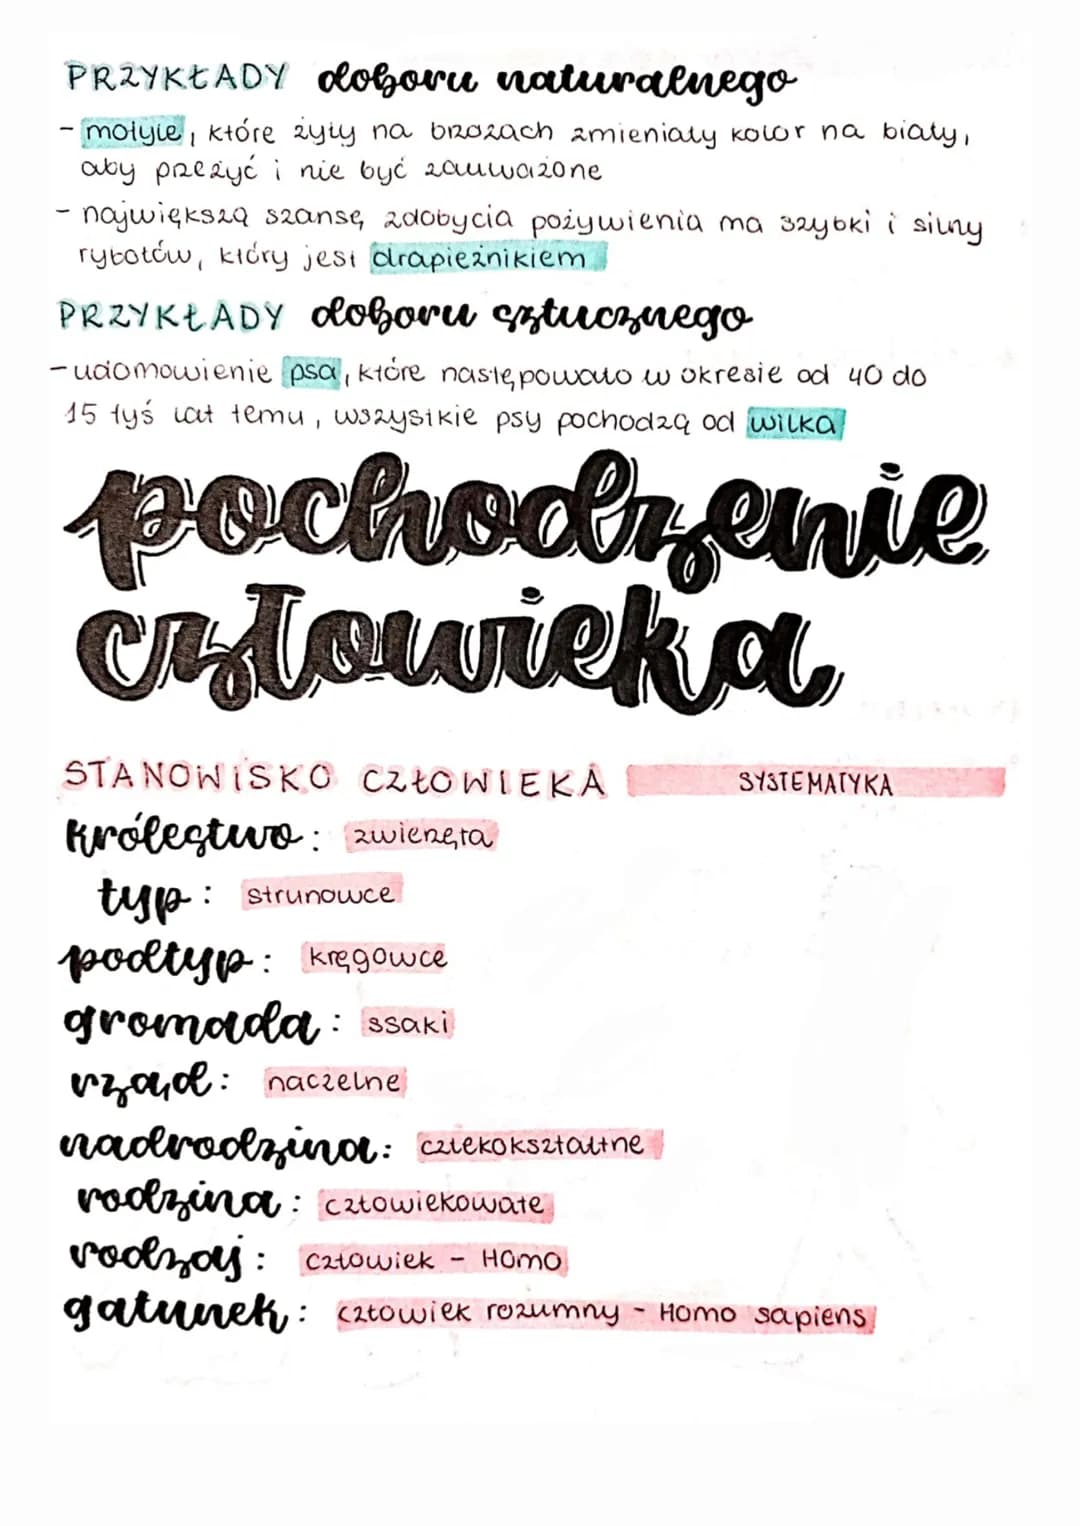 PRZYKŁADY doboru naturalnego
- motyle, które żyły na brzozach zmieniały kolor na biały,
aby przeżyć i nie być zauważone
- największą szansę zdobycia pożywienia ma szybki i silny
rybołów, który jest drapieżnikiem
PRZYKŁADY doboru sztucznego
- udomowienie psa, które następowało w okresie od 40 do
15 tyś lat temu, wszystkie psy pochodzą od wilka
pochodzenie
człowieka
STANOWISKO CZŁOWIEKA SYSTEMATYKA
królestwo: zwierzęta
typ: strunowce
podtyp: kręgowce
gromada: ssaki
rząd: naczelne
nadrodzina: człekokształtne
rodzina: człowiekowate
rodzaj: człowiek - Homo
gatunek: człowiek rozumny - Homo sapiens